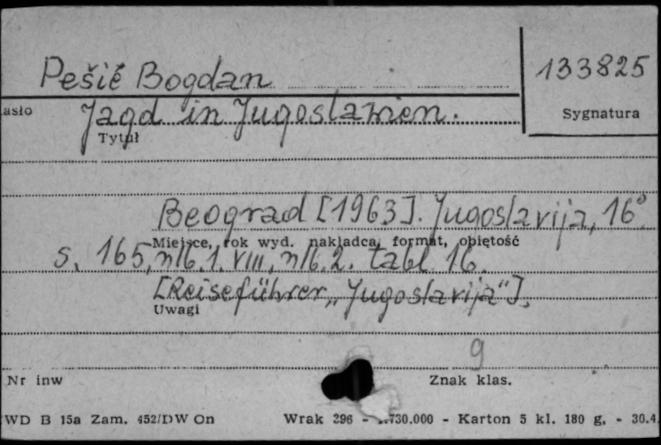 Pešić Bogdan
133825
asło
Jagd in Jugoslawien.
Sygnatura
Tytuł
Beograd [1963]. Jugoslavija, 16°
Miejsce, rok wyd. nakładca, format, objętość
s. 165, nlb. 1. VIII, nlb. 2. tabl. 16.
[Reiseführer „Jugoslavija"].
Uwagi
9
Nr inw
Znak klas.
WD B 15a Zam. 452/DW On Wrak 296 - 1.730.000 - Karton 5 kl. 180 g, - 30.4